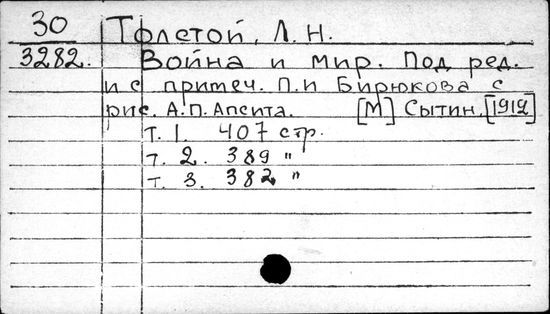 30 Толстой, Л. Н.
3282. Война и мир. Под ред.
и с примеч. П. И Бирюкова с
рис. А. П. Апсита. [М] Сытин. [1912]
т. 1. 407 стр.
т. 2. 389 "
т. 3. 382 "